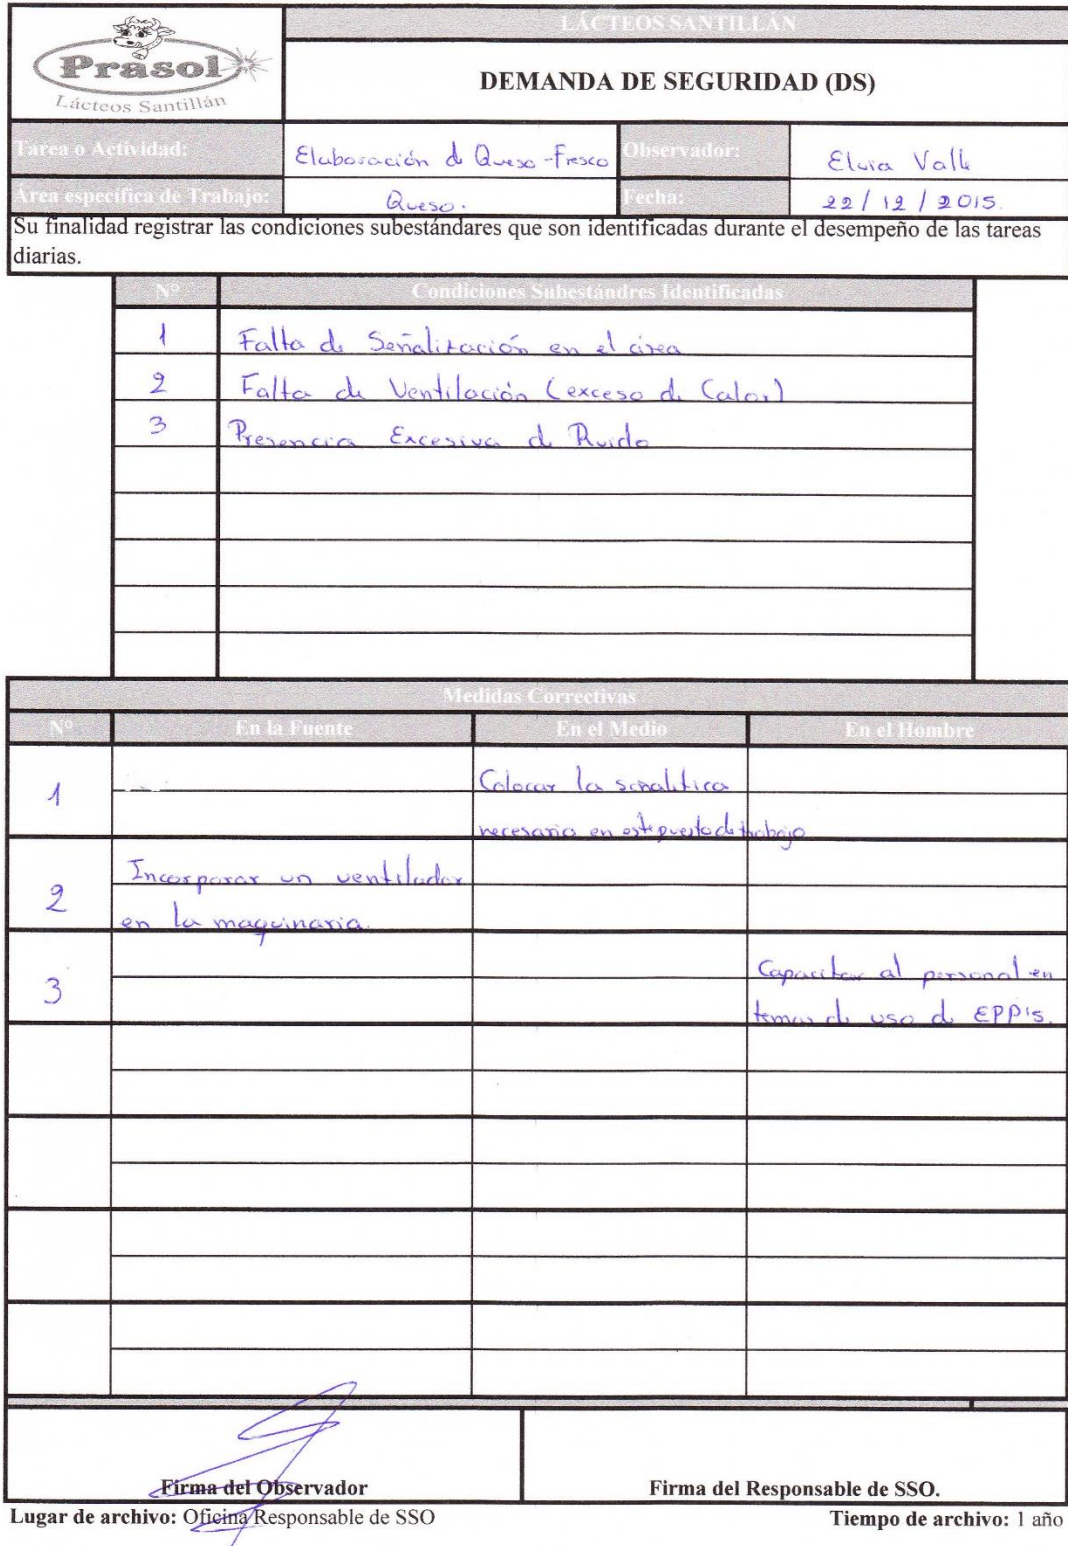 LÁCTEOS SANTILLÁN
Prasol
Lácteos Santillán
DEMANDA DE SEGURIDAD (DS)
Tarea o Actividad:
Elaboración de Queso-Fresco
Observador:
Elvia Valle
Área específica de Trabajo:
Queso.
Fecha:
22/12/2015.
Su finalidad registrar las condiciones subestándares que son identificadas durante el desempeño de las tareas
diarias.
N° Condiciones Subestándres Identificadas
1 Falta de Señalización en el área
2 Falta de Ventilación (exceso de Calor)
3 Presencia Excesiva de Ruido
Medidas Correctivas
N° En la Fuente En el Medio En el Hombre
1 Colocar la señalitica
necesaria en este puesto de trabajo
2 Incorporar un ventilador
en la maquinaria.
3 Capacitar al personal en
temas de uso de EPP's.
Firma del Observador Firma del Responsable de SSO.
Lugar de archivo: Oficina Responsable de SSO Tiempo de archivo: 1 año